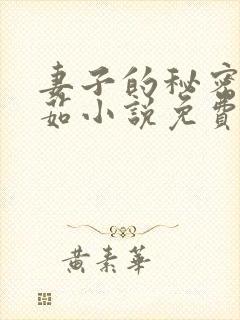 妻子的秘密
茹小說免費
黄素華